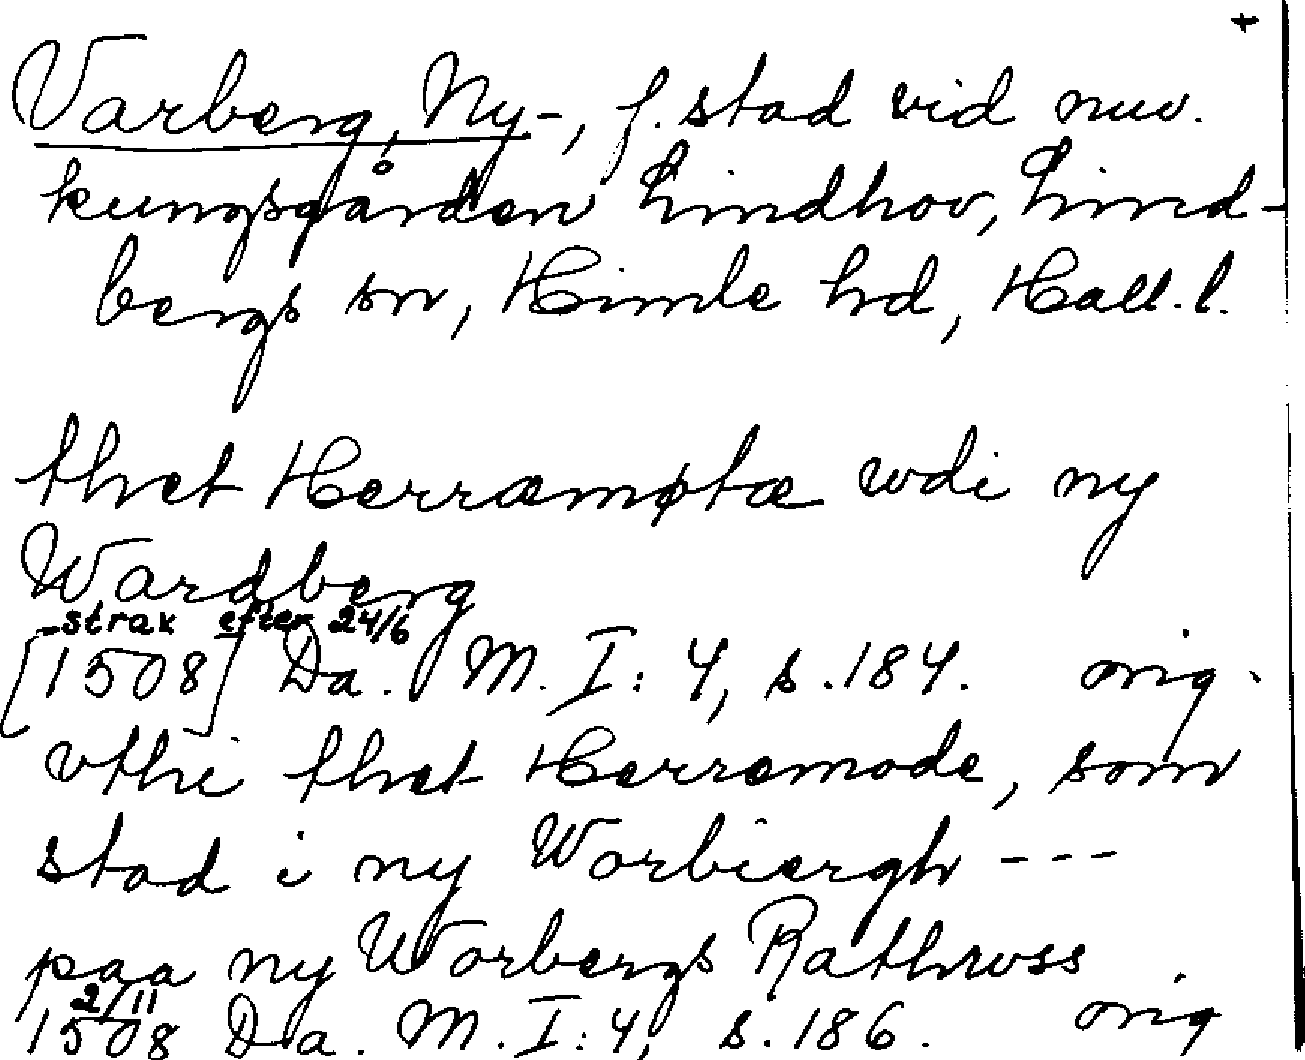 +
Varberg, Ny-, f. stad vid nuv.
kungsgården Lindhov, Lind-
bergs sn, Himle hd, Hall. l.
thet Herræmøtæ wdi ny
Wardberg
strax efter 24/6
[1508] Da. M. I: 4, s. 184. orig.
vthi thet Herremode, som
stod i ny Worbiergh ---
paa ny Worbergs Rathwss
2/11
1508 Da. M. I: 4, s. 186. orig